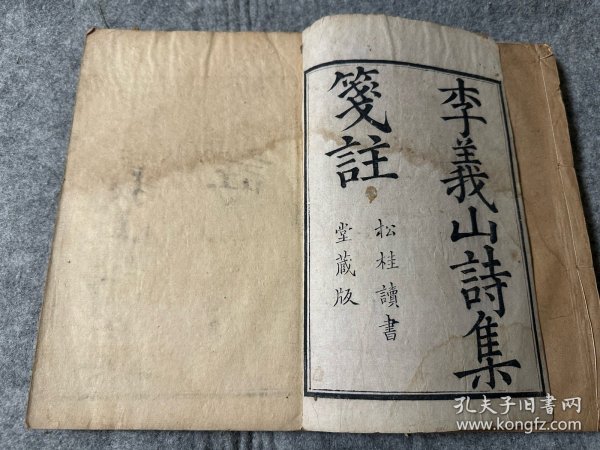 李義山詩集
箋註
松桂讀書
堂藏版
孔夫子旧书网
www.kongfz.com